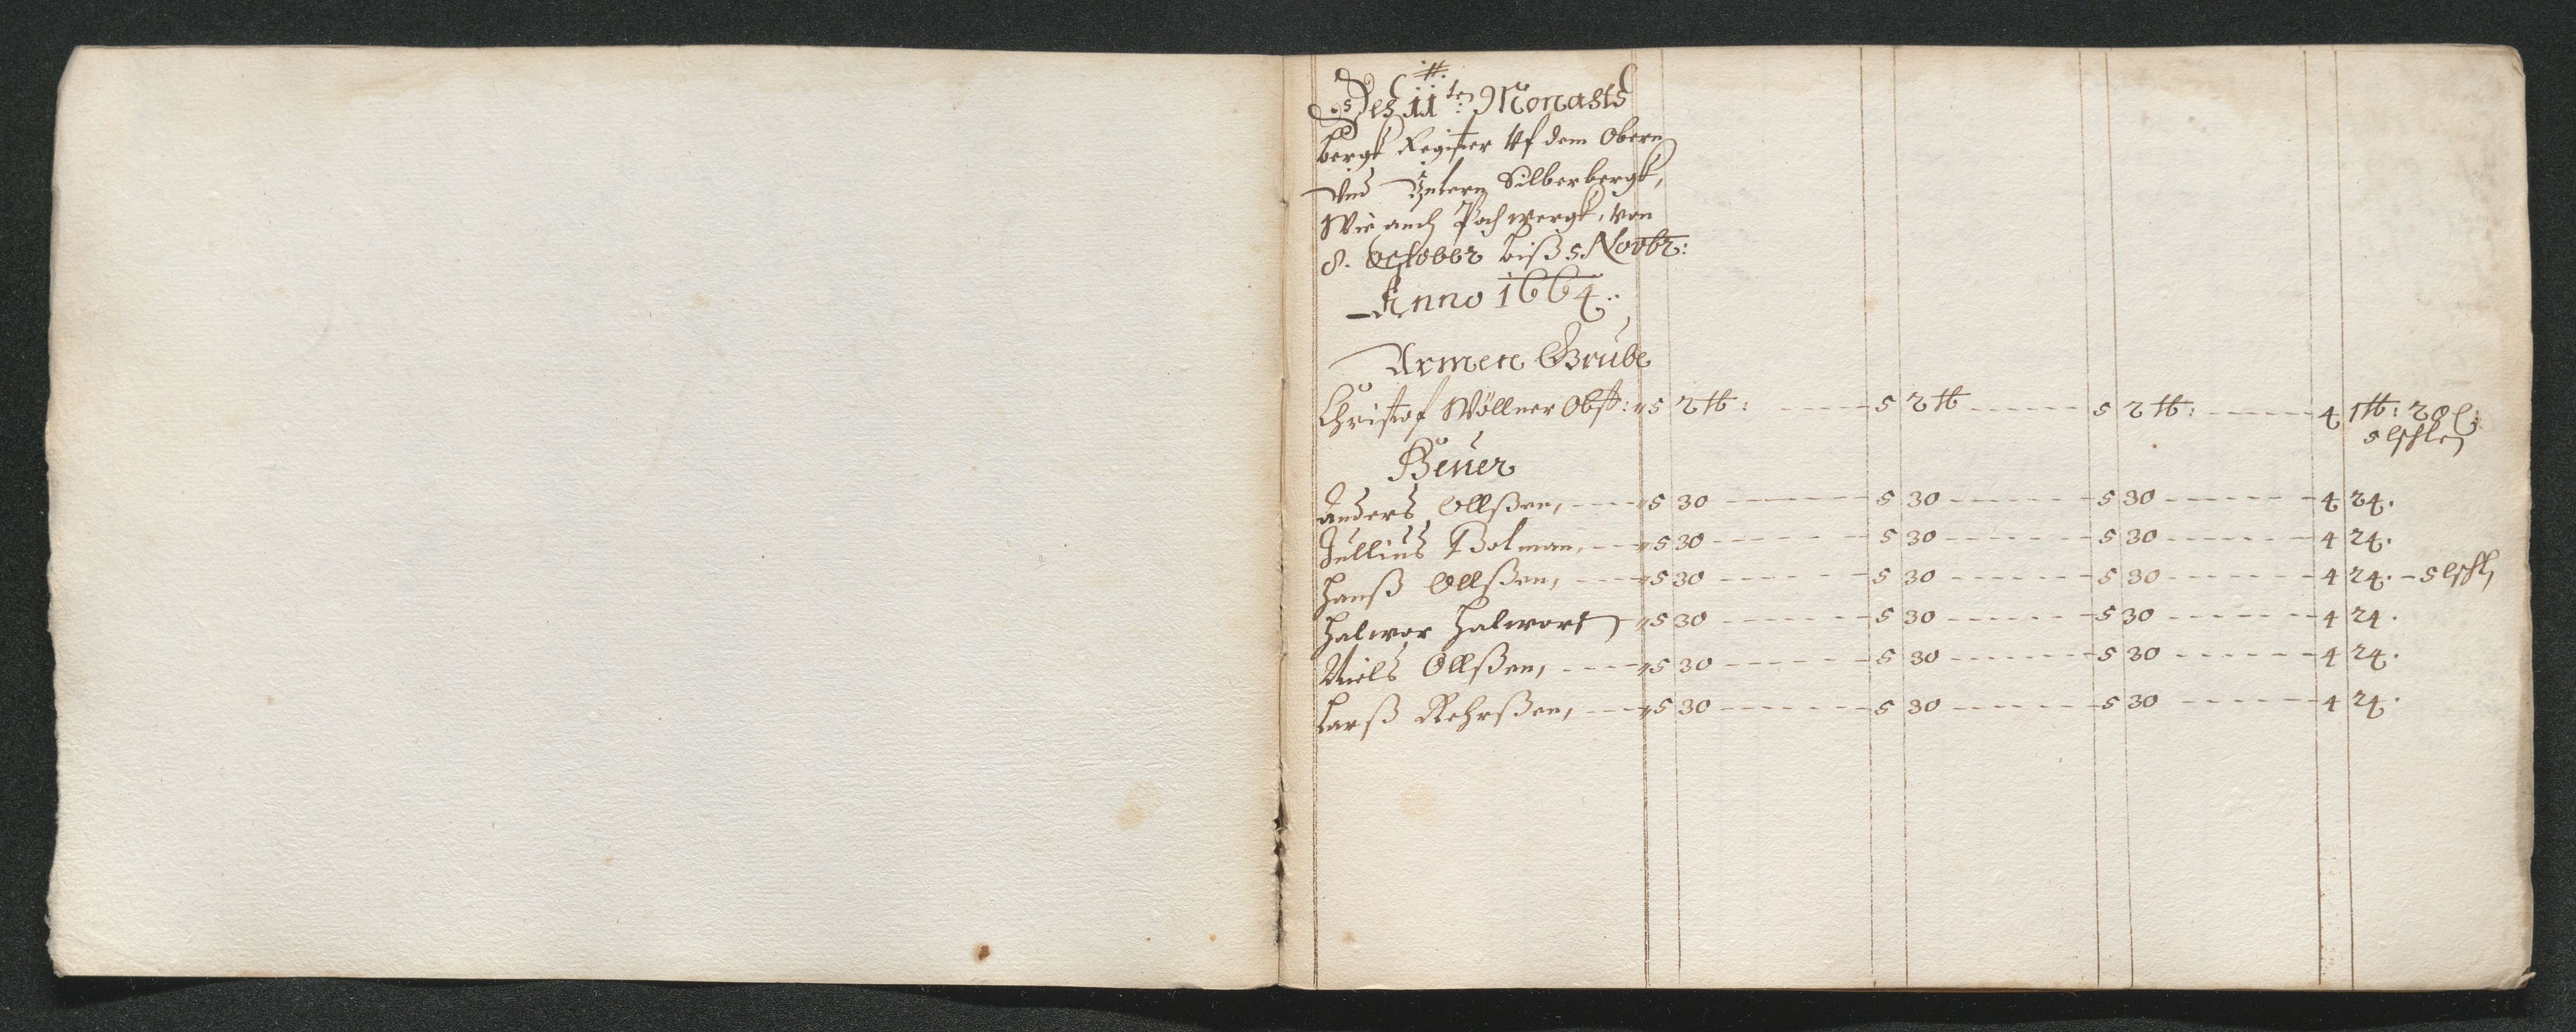 Des 11ten Monasts
bergk Register Uf dem Obern
Und Untern Silberbergk,
Wie auch Pochwergk, von
8. October biß 5 Novbr:
Anno 1664.
Armen Grube
Christof Wöllner Obst: 5 2 tb: 5 2 tb 5 2 tb: 4 1 tb: 28 ß:
5
Beuer
Anders Ollßen, 5 30 5 30 5 30 4 24.
Jullius Bolman, 5 30 5 30 5 30 4 24.
Hanß Ollßen, 5 30 5 30 5 30 4 24. - 5
Halwor Halworß 5 30 5 30 5 30 4 24.
Niels Ollßen, 5 30 5 30 5 30 4 24.
Larß Rehrßen, 5 30 5 30 5 30 4 24.